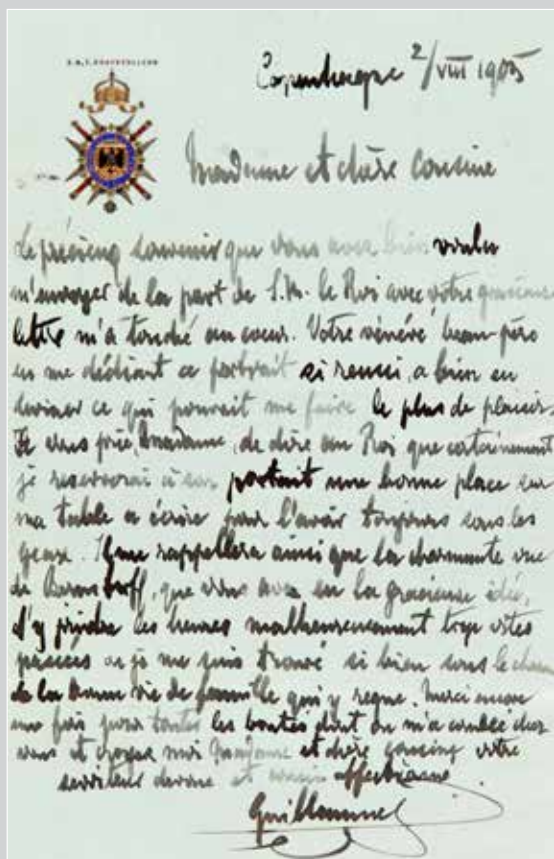 S.M.Y. HOHENZOLLERN
Copenhague 2/VIII 1905
Madame et chère cousine
Le précieux souvenir que vous avez bien voulu
m'envoyer de la part de S.M. le Roi avec votre gracieuse
lettre m'a touché au coeur. Votre vénéré beau père
en me dédiant ce portrait si reussi, a bien su
deviner ce qui pourrait me faire le plus de plaisir.
Je vous prie, Madame, de dire au Roi que certainement
je reserverai à son portrait une bonne place sur
ma table a écrire pour l'avoir toujours sous les
yeux. Il me rappellera ainsi que la charmante vue
de Bernstorff, que vous avez eu la gracieuse idée,
d'y joindre les heures malheureusement trop vites
passées ou je me suis trouvé si bien sous le charme
de la bonne vie de famille qui y regne. Merci encore
une fois pour toutes les bontés dont on m'a comblé chez
vous et croyez moi Madame et chère cousine votre
serviteur devoué et cousin affectionné
Guillaume